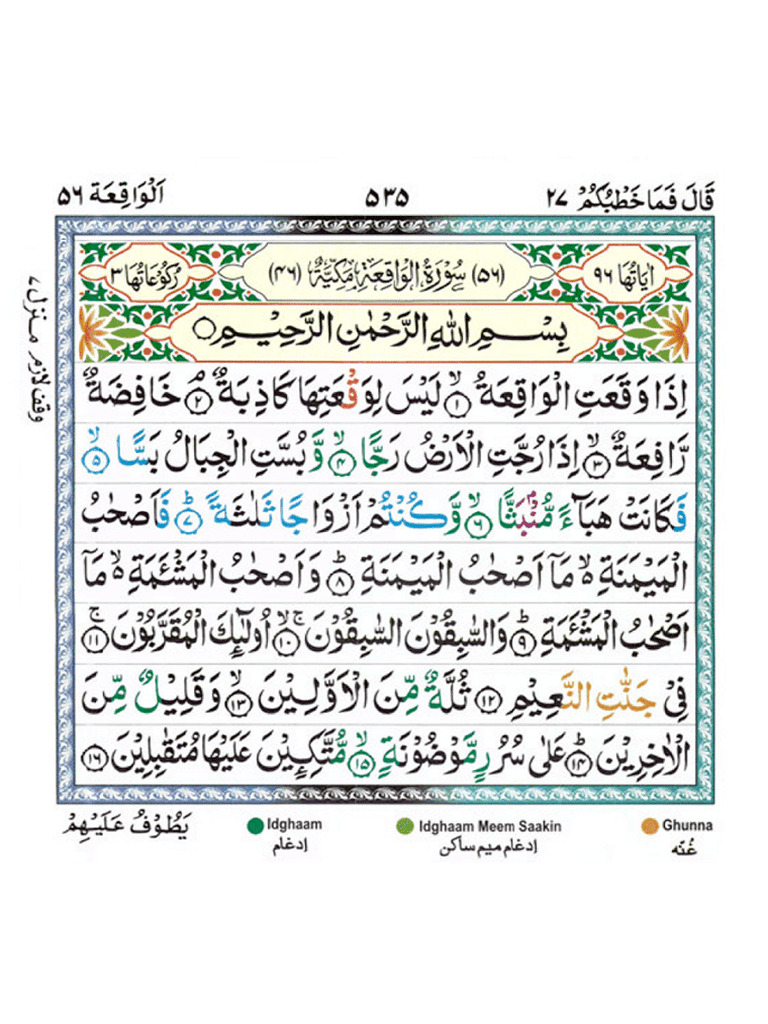 قَالَ فَمَا خَطْبُكُمْ ٢٧ ٥٣٥ اَلْوَاقِعَة ٥٦
اٰيَاتُهَا ٩٦ (٥٦) سُوْرَةُ الْوَاقِعَةِ مَكِّيَّةٌ (٤٦) رُكُوْعَاتُهَا ٣
بِسْمِ اللّٰهِ الرَّحْمٰنِ الرَّحِيْمِ
اِذَا وَقَعَتِ الْوَاقِعَةُ ۙ۝١ لَيْسَ لِوَقْعَتِهَا كَاذِبَةٌ ۘ۝٢ خَافِضَةٌ
رَّافِعَةٌ ۙ۝٣ اِذَا رُجَّتِ الْاَرْضُ رَجًّا ۙ۝٤ وَّ بُسَّتِ الْجِبَالُ بَسًّا ۙ۝٥
فَكَانَتْ هَبَآءً مُّنْۢبَثًّا ۙ۝٦ وَّ كُنْتُمْ اَزْوَاجًا ثَلٰثَةً ؕ۝٧ فَاَصْحٰبُ
الْمَيْمَنَةِ ۙ۬ مَاۤ اَصْحٰبُ الْمَيْمَنَةِ ؕ۝٨ وَ اَصْحٰبُ الْمَشْـَٔمَةِ ۙ۬ مَاۤ
اَصْحٰبُ الْمَشْـَٔمَةِ ؕ۝٩ وَ السّٰبِقُوْنَ السّٰبِقُوْنَ ۚۙ۝١٠ اُولٰٓئِكَ الْمُقَرَّبُوْنَ ۚ۝١١
فِيْ جَنّٰتِ النَّعِيْمِ ۝١٢ ثُلَّةٌ مِّنَ الْاَوَّلِيْنَ ۙ۝١٣ وَ قَلِيْلٌ مِّنَ
الْاٰخِرِيْنَ ؕ۝١٤ عَلٰى سُرُرٍ مَّوْضُوْنَةٍ ۙ۝١٥ مُّتَّكِـِٕيْنَ عَلَيْهَا مُتَقٰبِلِيْنَ ۝١٦
وقف لازم منزل ٧
يَطُوْفُ عَلَيْهِمْ
Idghaam Idghaam Meem Saakin Ghunna
ادغام ادغام میم ساکن غُنّه